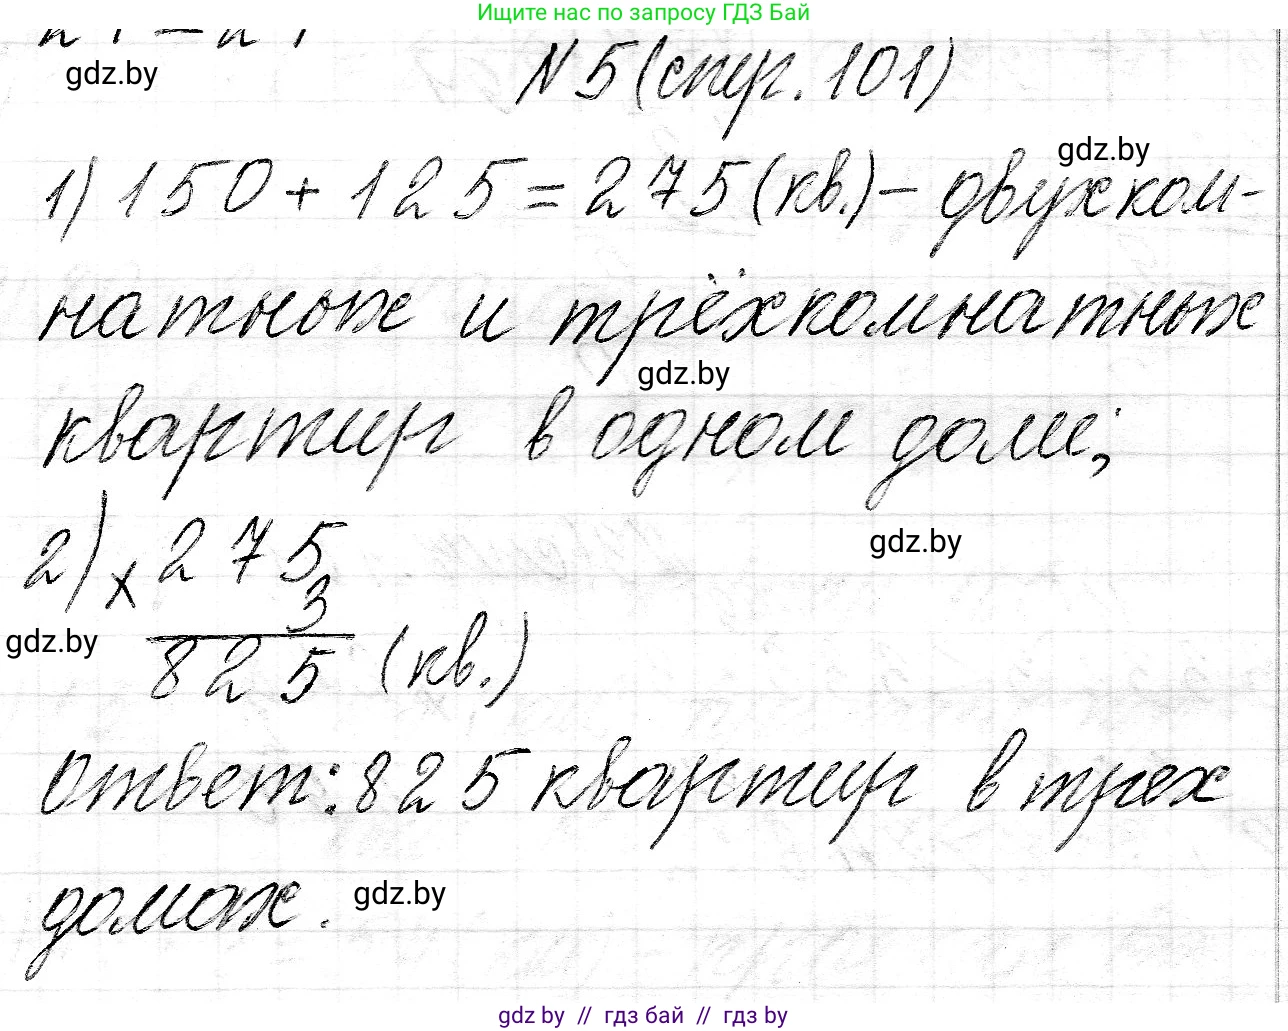 Ищите нас по запросу ГДЗ Бай
gdz.by
N 5 (стр. 101)
gdz.by
1) 150 + 125 = 275 (кв.) – двухком-
натных и трёхкомнатных
gdz.by
квартир в одном доме;
gdz.by
2) x 275
3
gdz.by
825 (кв.)
Ответ: 825 квартир в трех
домах.
gdz.by
gdz.by // гдз бай // гдз by